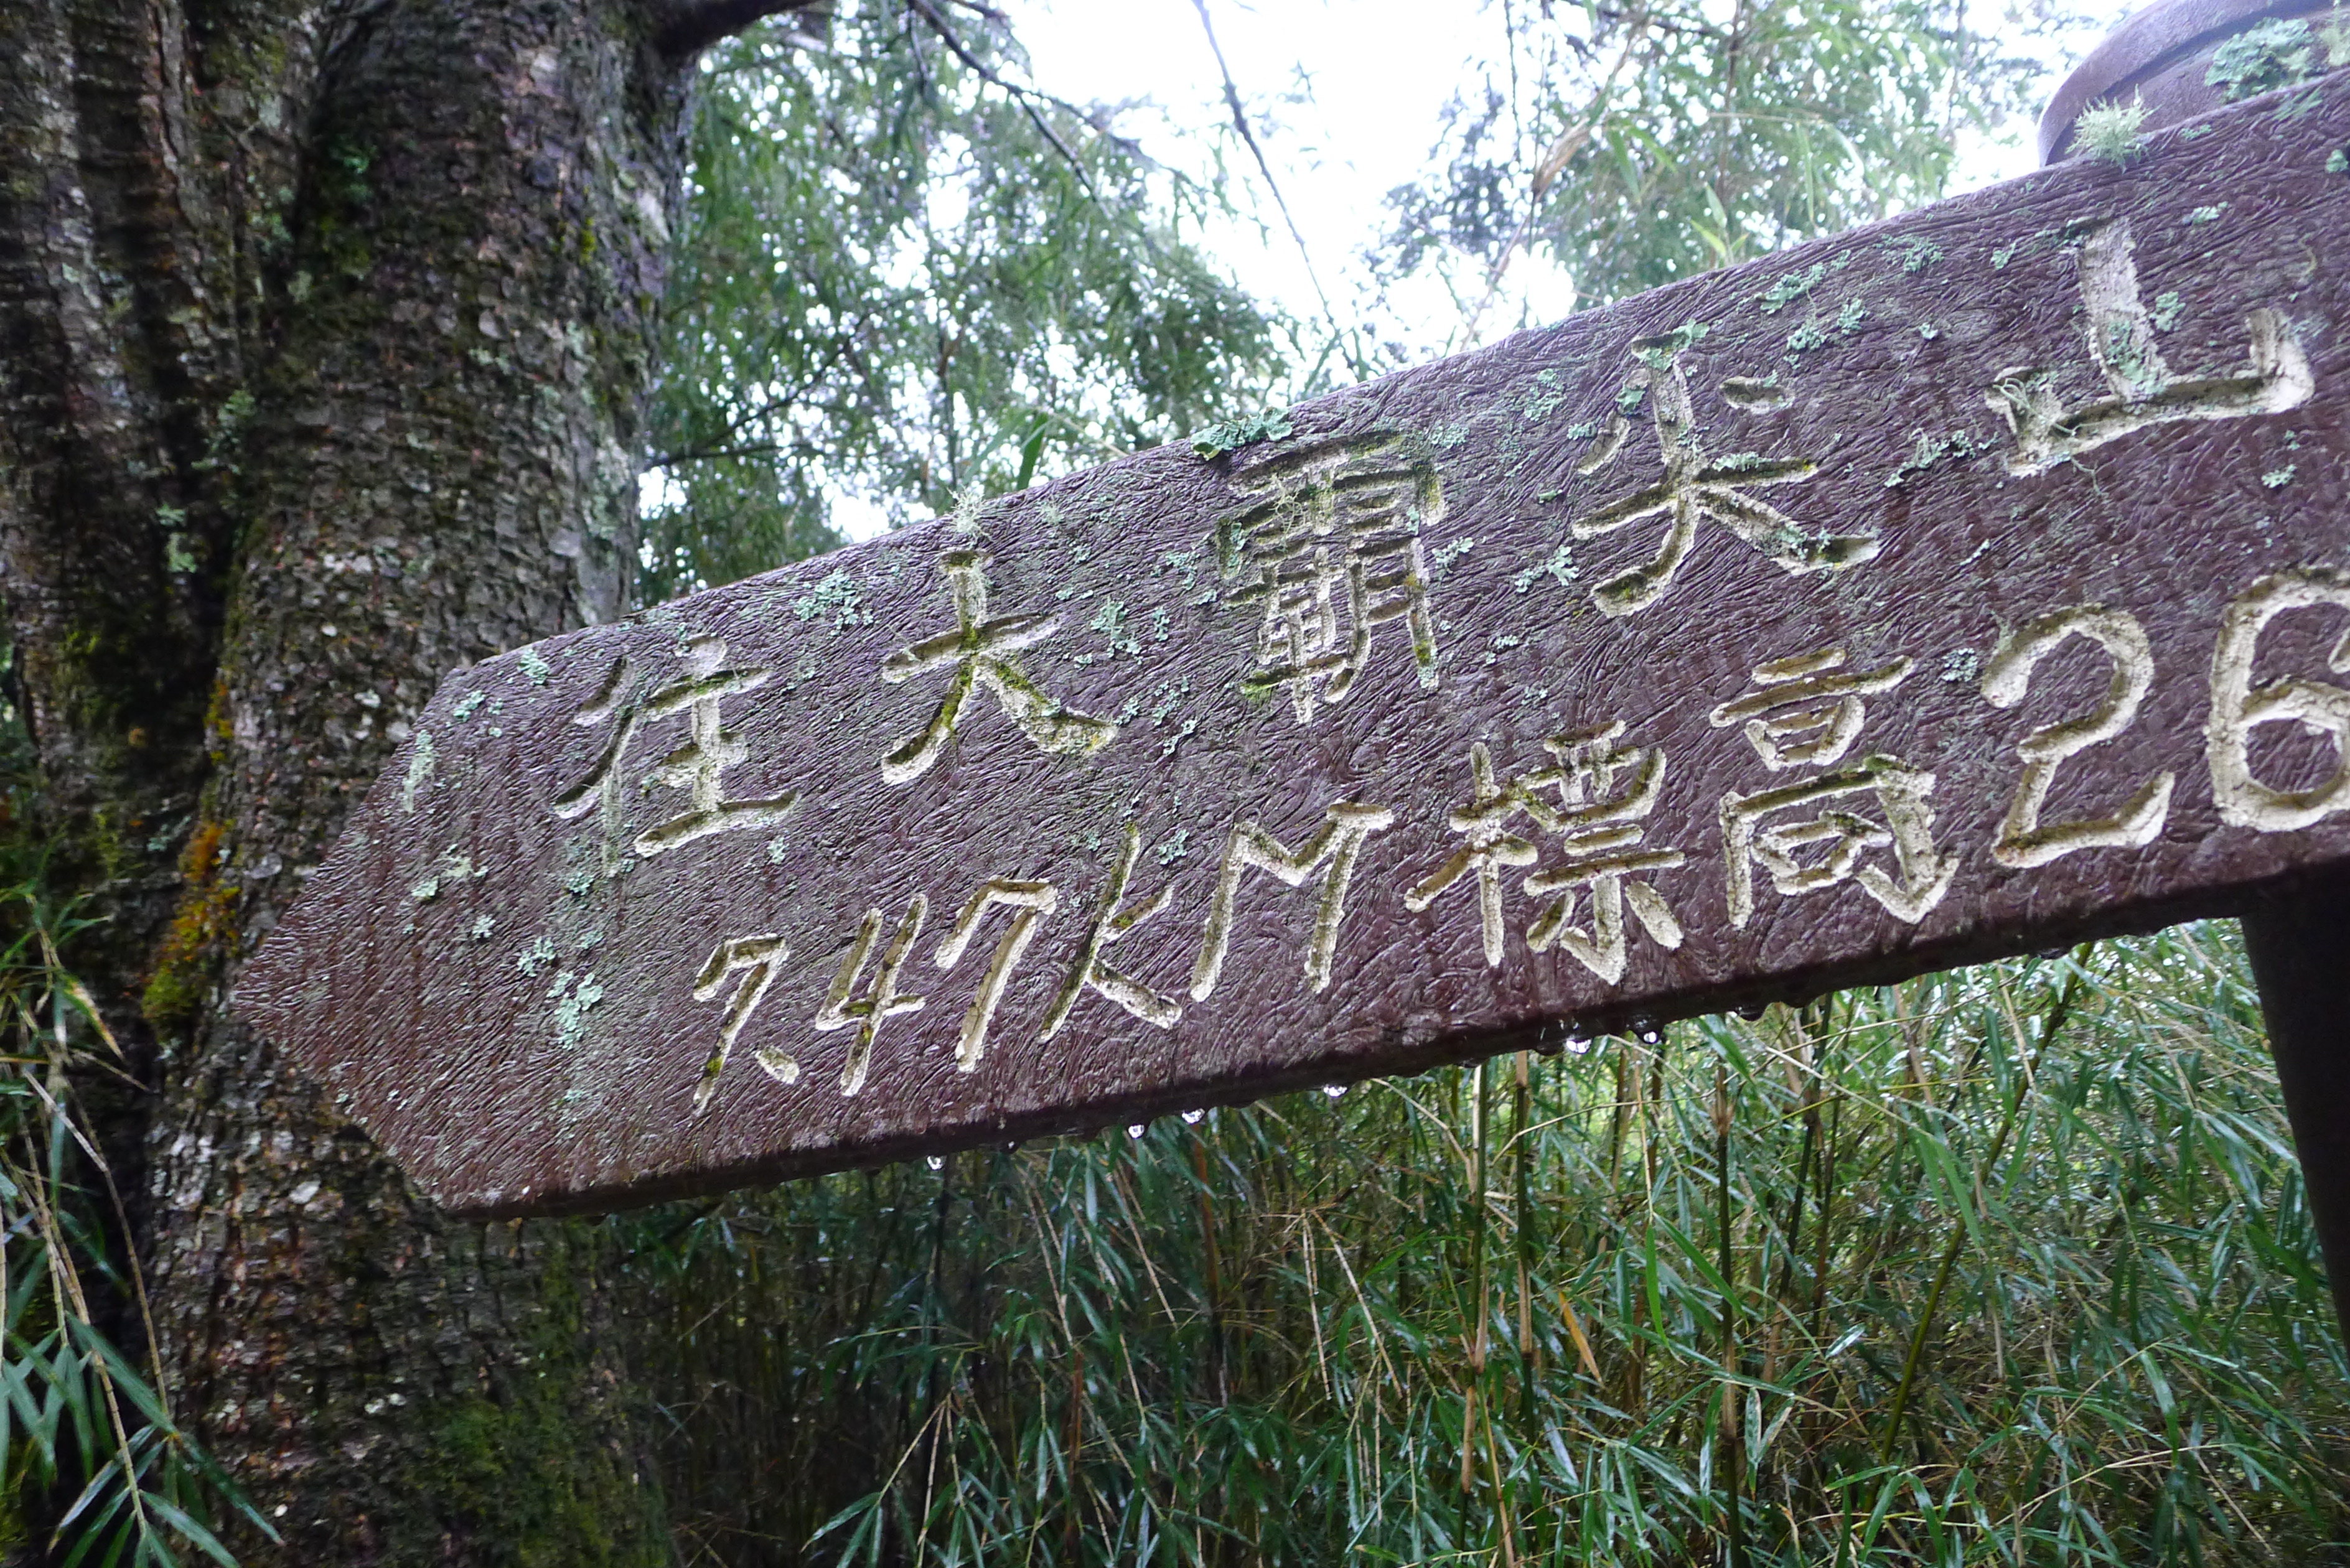 往大霸尖山
7.47KM標高26